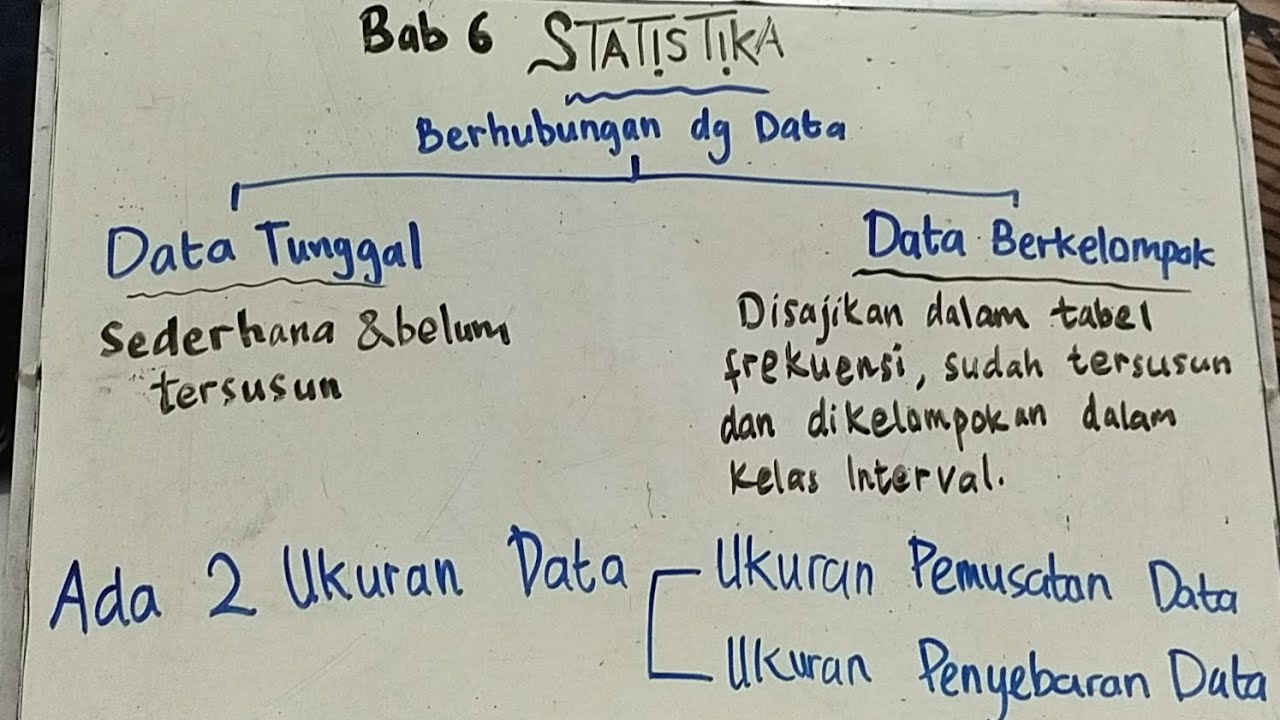 Bab 6 STATISTIKA
Berhubungan dg Data
Data Tunggal
Sederhana & belum
tersusun
Data Berkelompok
Disajikan dalam tabel
frekuensi, sudah tersusun
dan dikelompokan dalam
Kelas Interval.
Ada 2 Ukuran Data
Ukuran Pemusatan Data
Ukuran Penyebaran Data